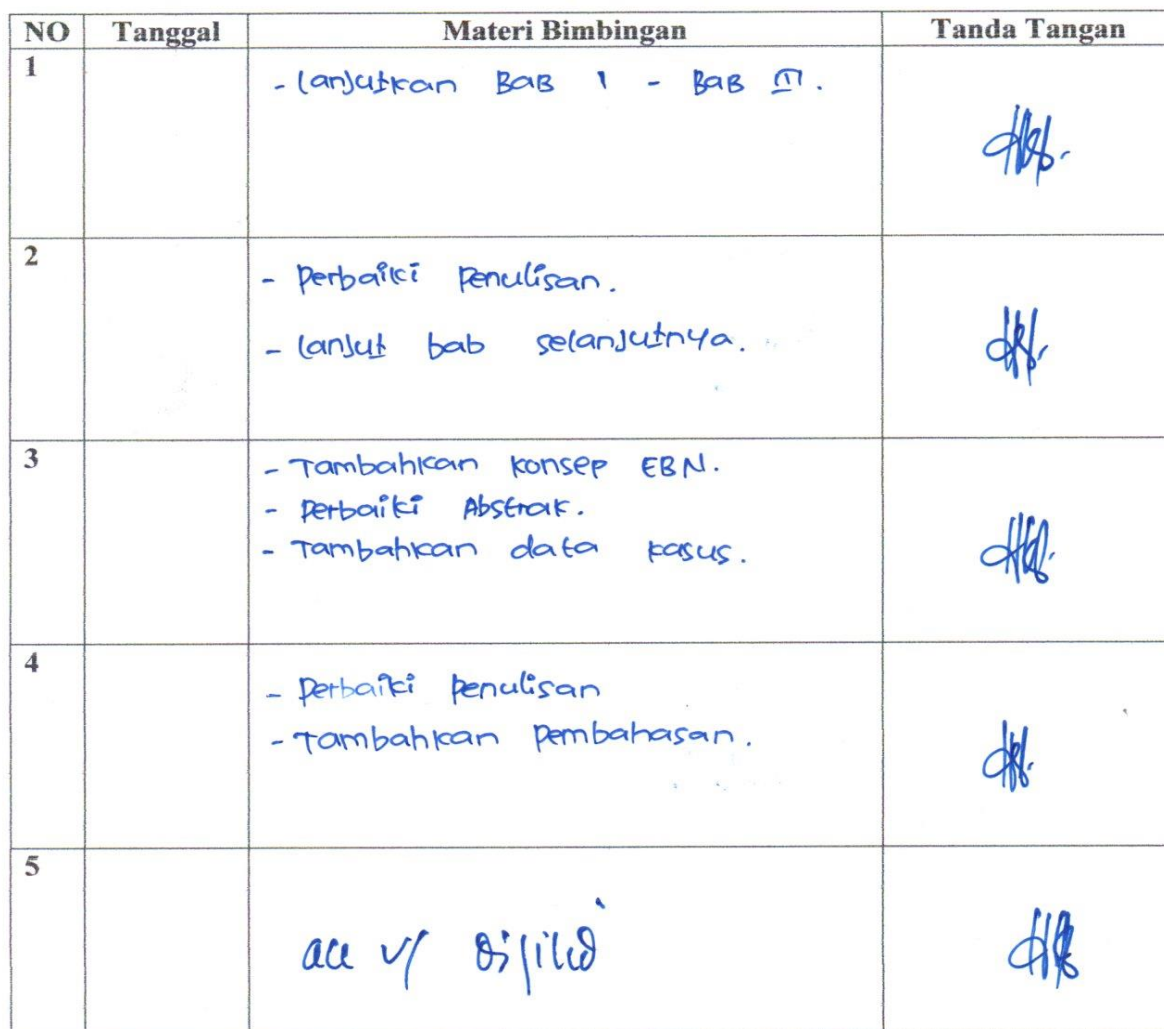 NO Tanggal Materi Bimbingan Tanda Tangan
1
- lanjutkan BAB 1 - BAB III.
2
- Perbaiki Penulisan.
- lanjut bab selanjutnya.
3
- Tambahkan konsep EBN.
- Perbaiki Abstrak.
- Tambahkan data kasus.
4
- Perbaiki Penulisan
- Tambahkan Pembahasan.
5
acc u/